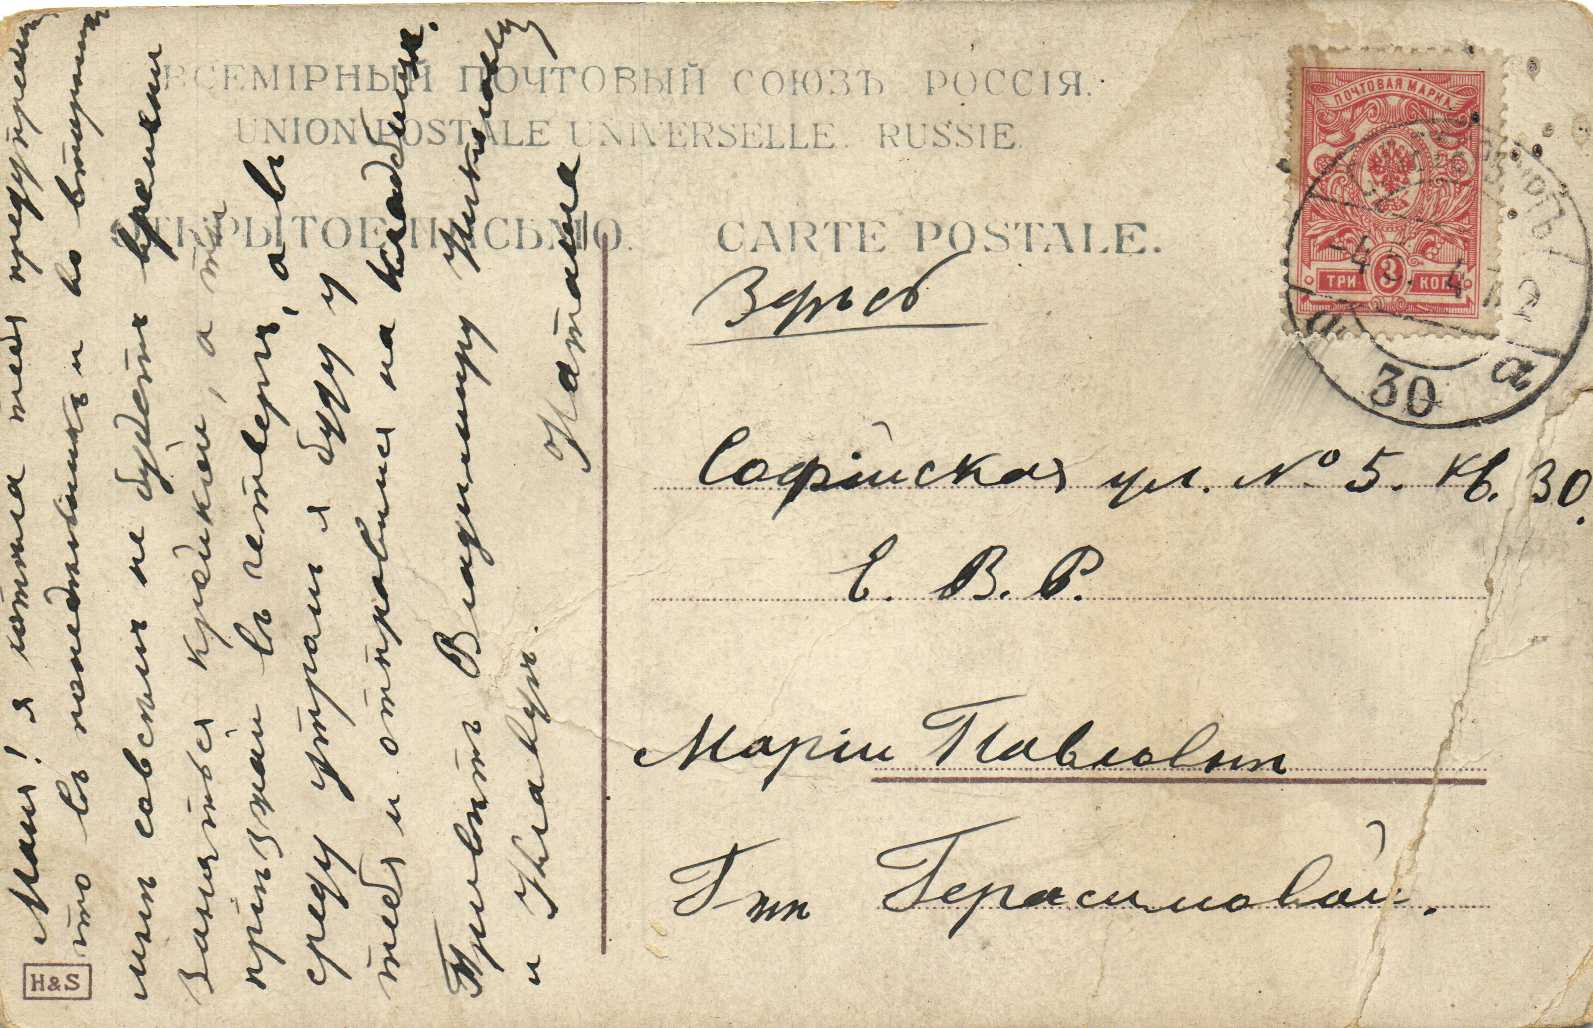 ВСЕМІРНЫЙ ПОЧТОВЫЙ СОЮЗЪ РОССІЯ.
UNION POSTALE UNIVERSELLE. RUSSIE.
ОТКРЫТОЕ ПИСЬМО. CARTE POSTALE.
ПОЧТОВАЯ МАРКА
ТРИ 3 КОП
30 а
Здѣсь
Софійская ул. № 5. кв. 30.
Е. В. Р.
Маріи Павловнѣ
Гжѣ Герасимовой.
Маня! я хотѣла тебя предупредить
что въ понедѣльникъ и во вторникъ
мнѣ совсѣмъ не будетъ времени
заняться кройкой, а ты
пріѣзжай въ четвергъ, а въ
среду утромъ я буду у
тебя и отправимся на кладбище.
Привѣтъ Владиміру Николаеву
и Клавдіи.
Наташа
H&S